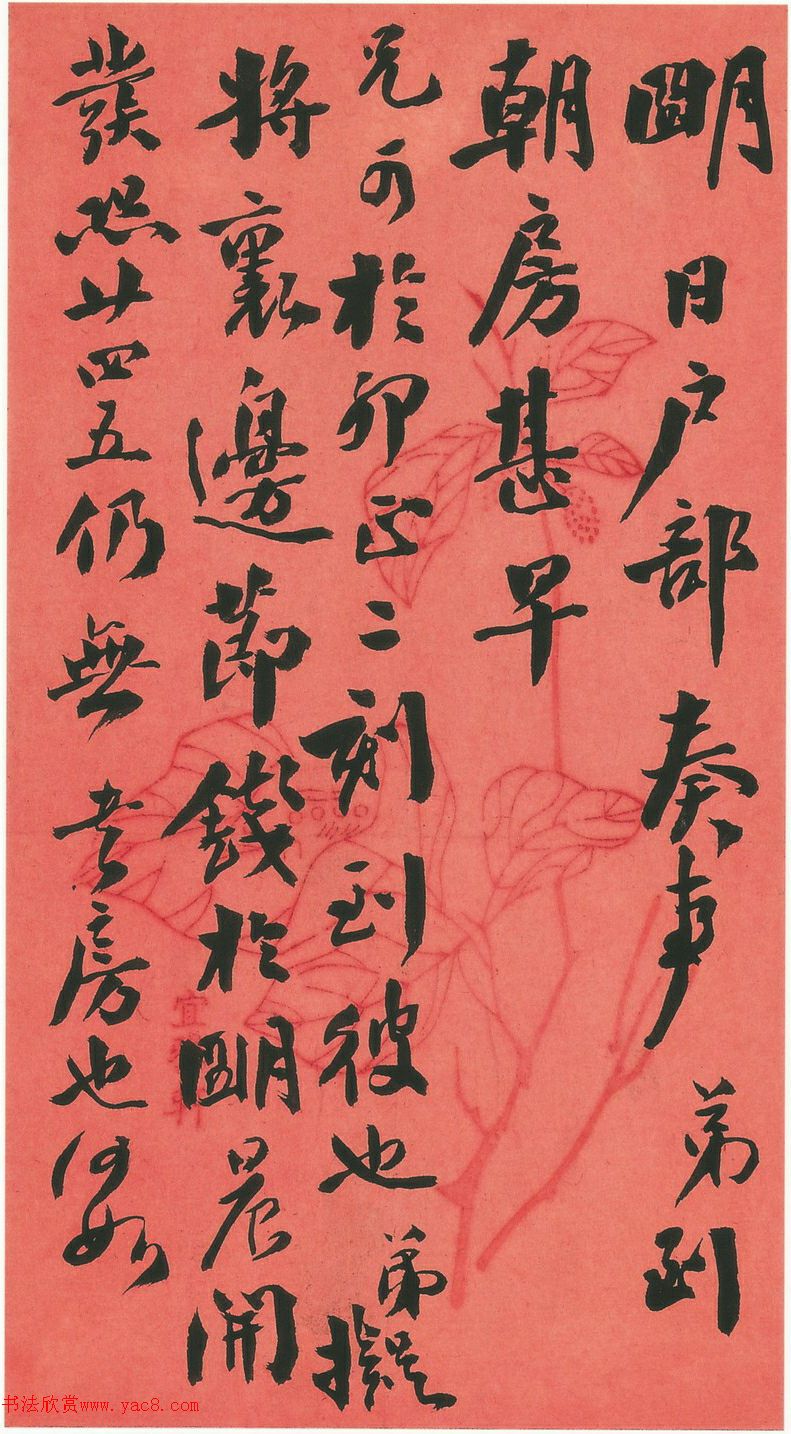 朙日户部奏事弟到
朝房甚早
兄可於卯正二刻到彼也弟擬
將裏邊節錢於朙晨開
發恐廿四五仍無書房也何如
书法欣赏www.yac8.com